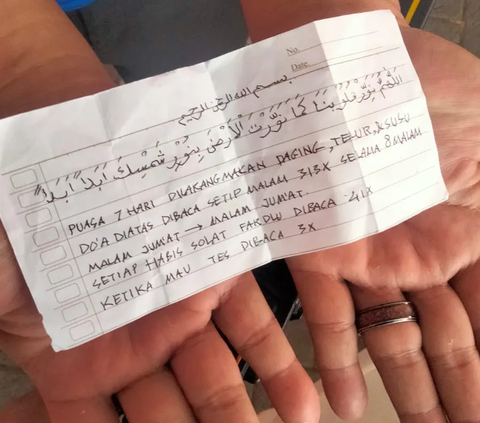 No.
Date
بسم الله الرحمن الرحيم
اَللّٰهُمَّ نَوِّرْ قُلُوْبَنَا كَمَا نَوَّرْتَ الْأَرْضَ بِنُوْرِ شَمْسِكَ اَبَدًا اَبَدًا
PUASA 7 HARI DILARANG MAKAN DAGING, TELUR, & SUSU
DO'A DIATAS DIBACA SETIP MALAM 313X SELAMA 8 MALAM
MALAM JUM'AT → MALAM JUM'AT.
SETIAP HABIS SOLAT FARDLU DIBACA 41X
KETIKA MAU TES DIBACA 3X